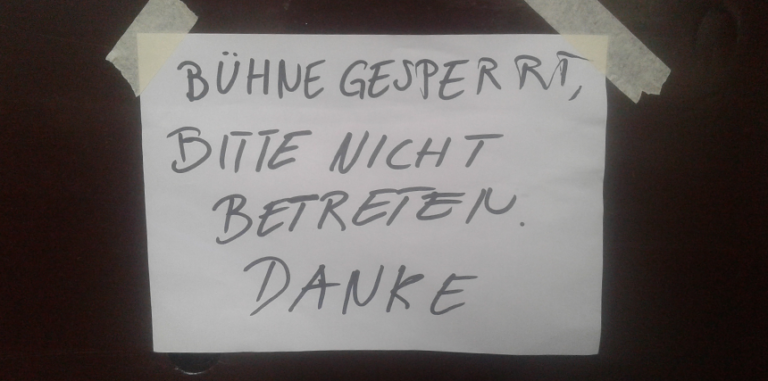 BÜHNE GESPERRT,
BITTE NICHT
BETRETEN.
DANKE